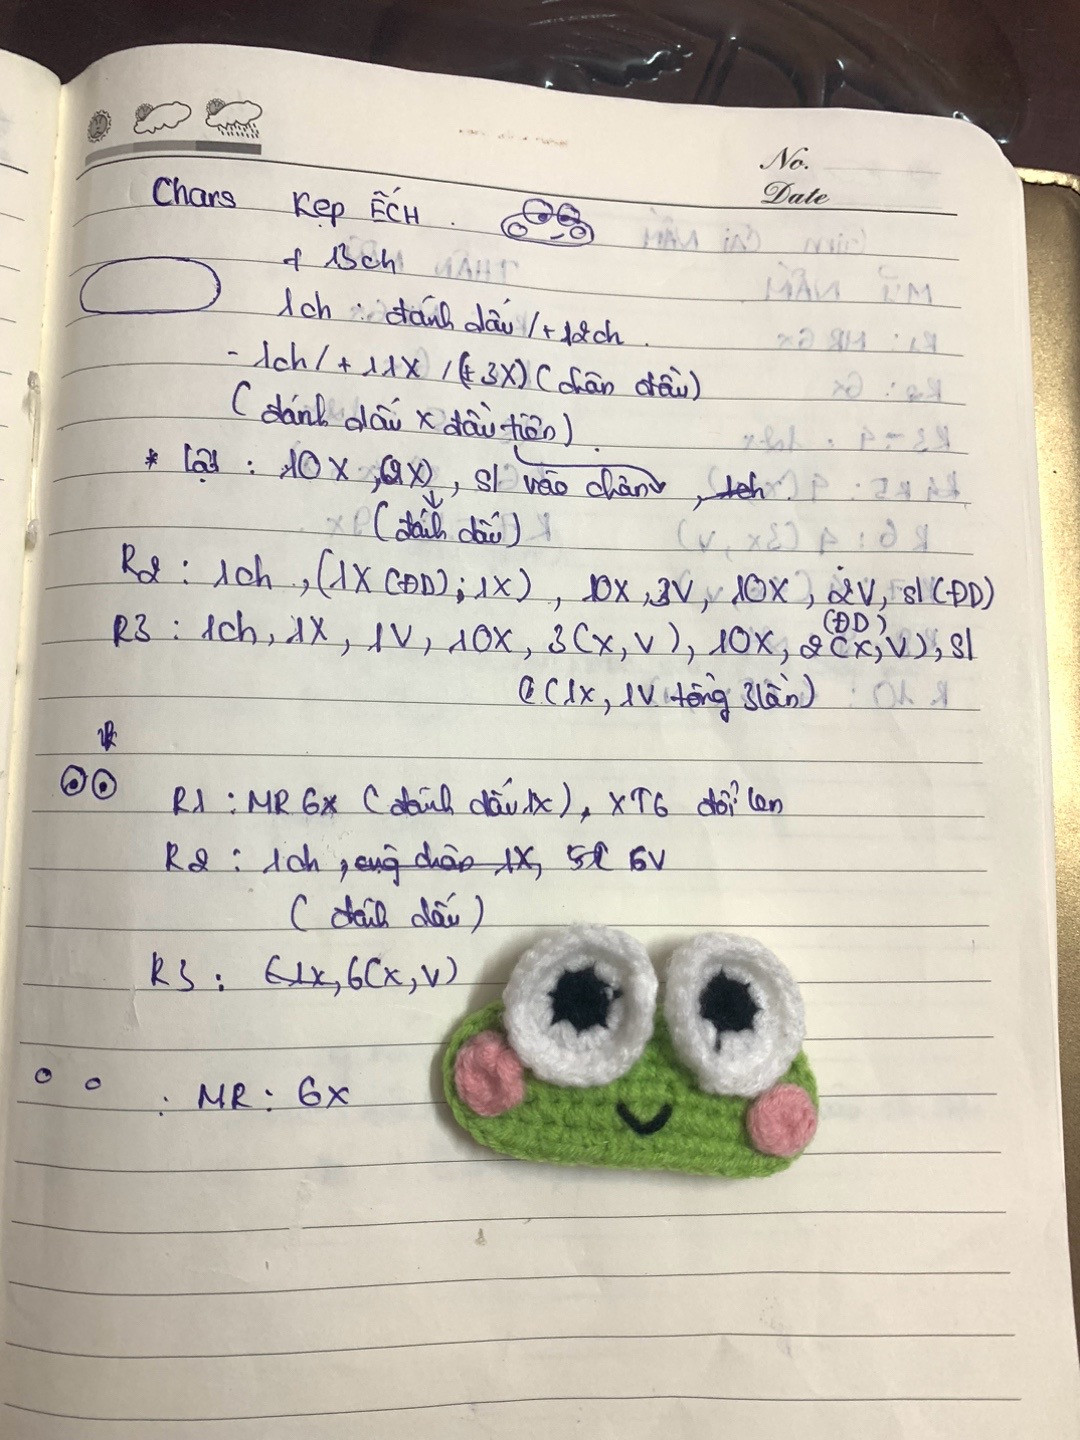 No.
Date
Chars Kẹp ẾCH.
+ 13ch
1ch : đánh dấu / + 12ch.
- 1ch / + 11X / (+ 3X) (chân đầu)
(đánh dấu x đầu tiên)
* Lật : 10X, (2X), sl vào chân, 1ch
(đánh dấu)
R2 : 1ch, (1X (ĐD); 1X), 10X, 3V, 10X, 2V, sl (ĐD)
(ĐD)
R3 : 1ch, 1X, 1V, 10X, 3(X, V), 10X, 2(X, V), sl
(1X, 1V tổng 3 lần)
R1 : MR 6x (đánh dấu 1x), XT6 đổi len
R2 : 1ch, cùng chân 1X, 6V
(đánh dấu)
R3 : 1x, 6(x, V)
: MR : 6x